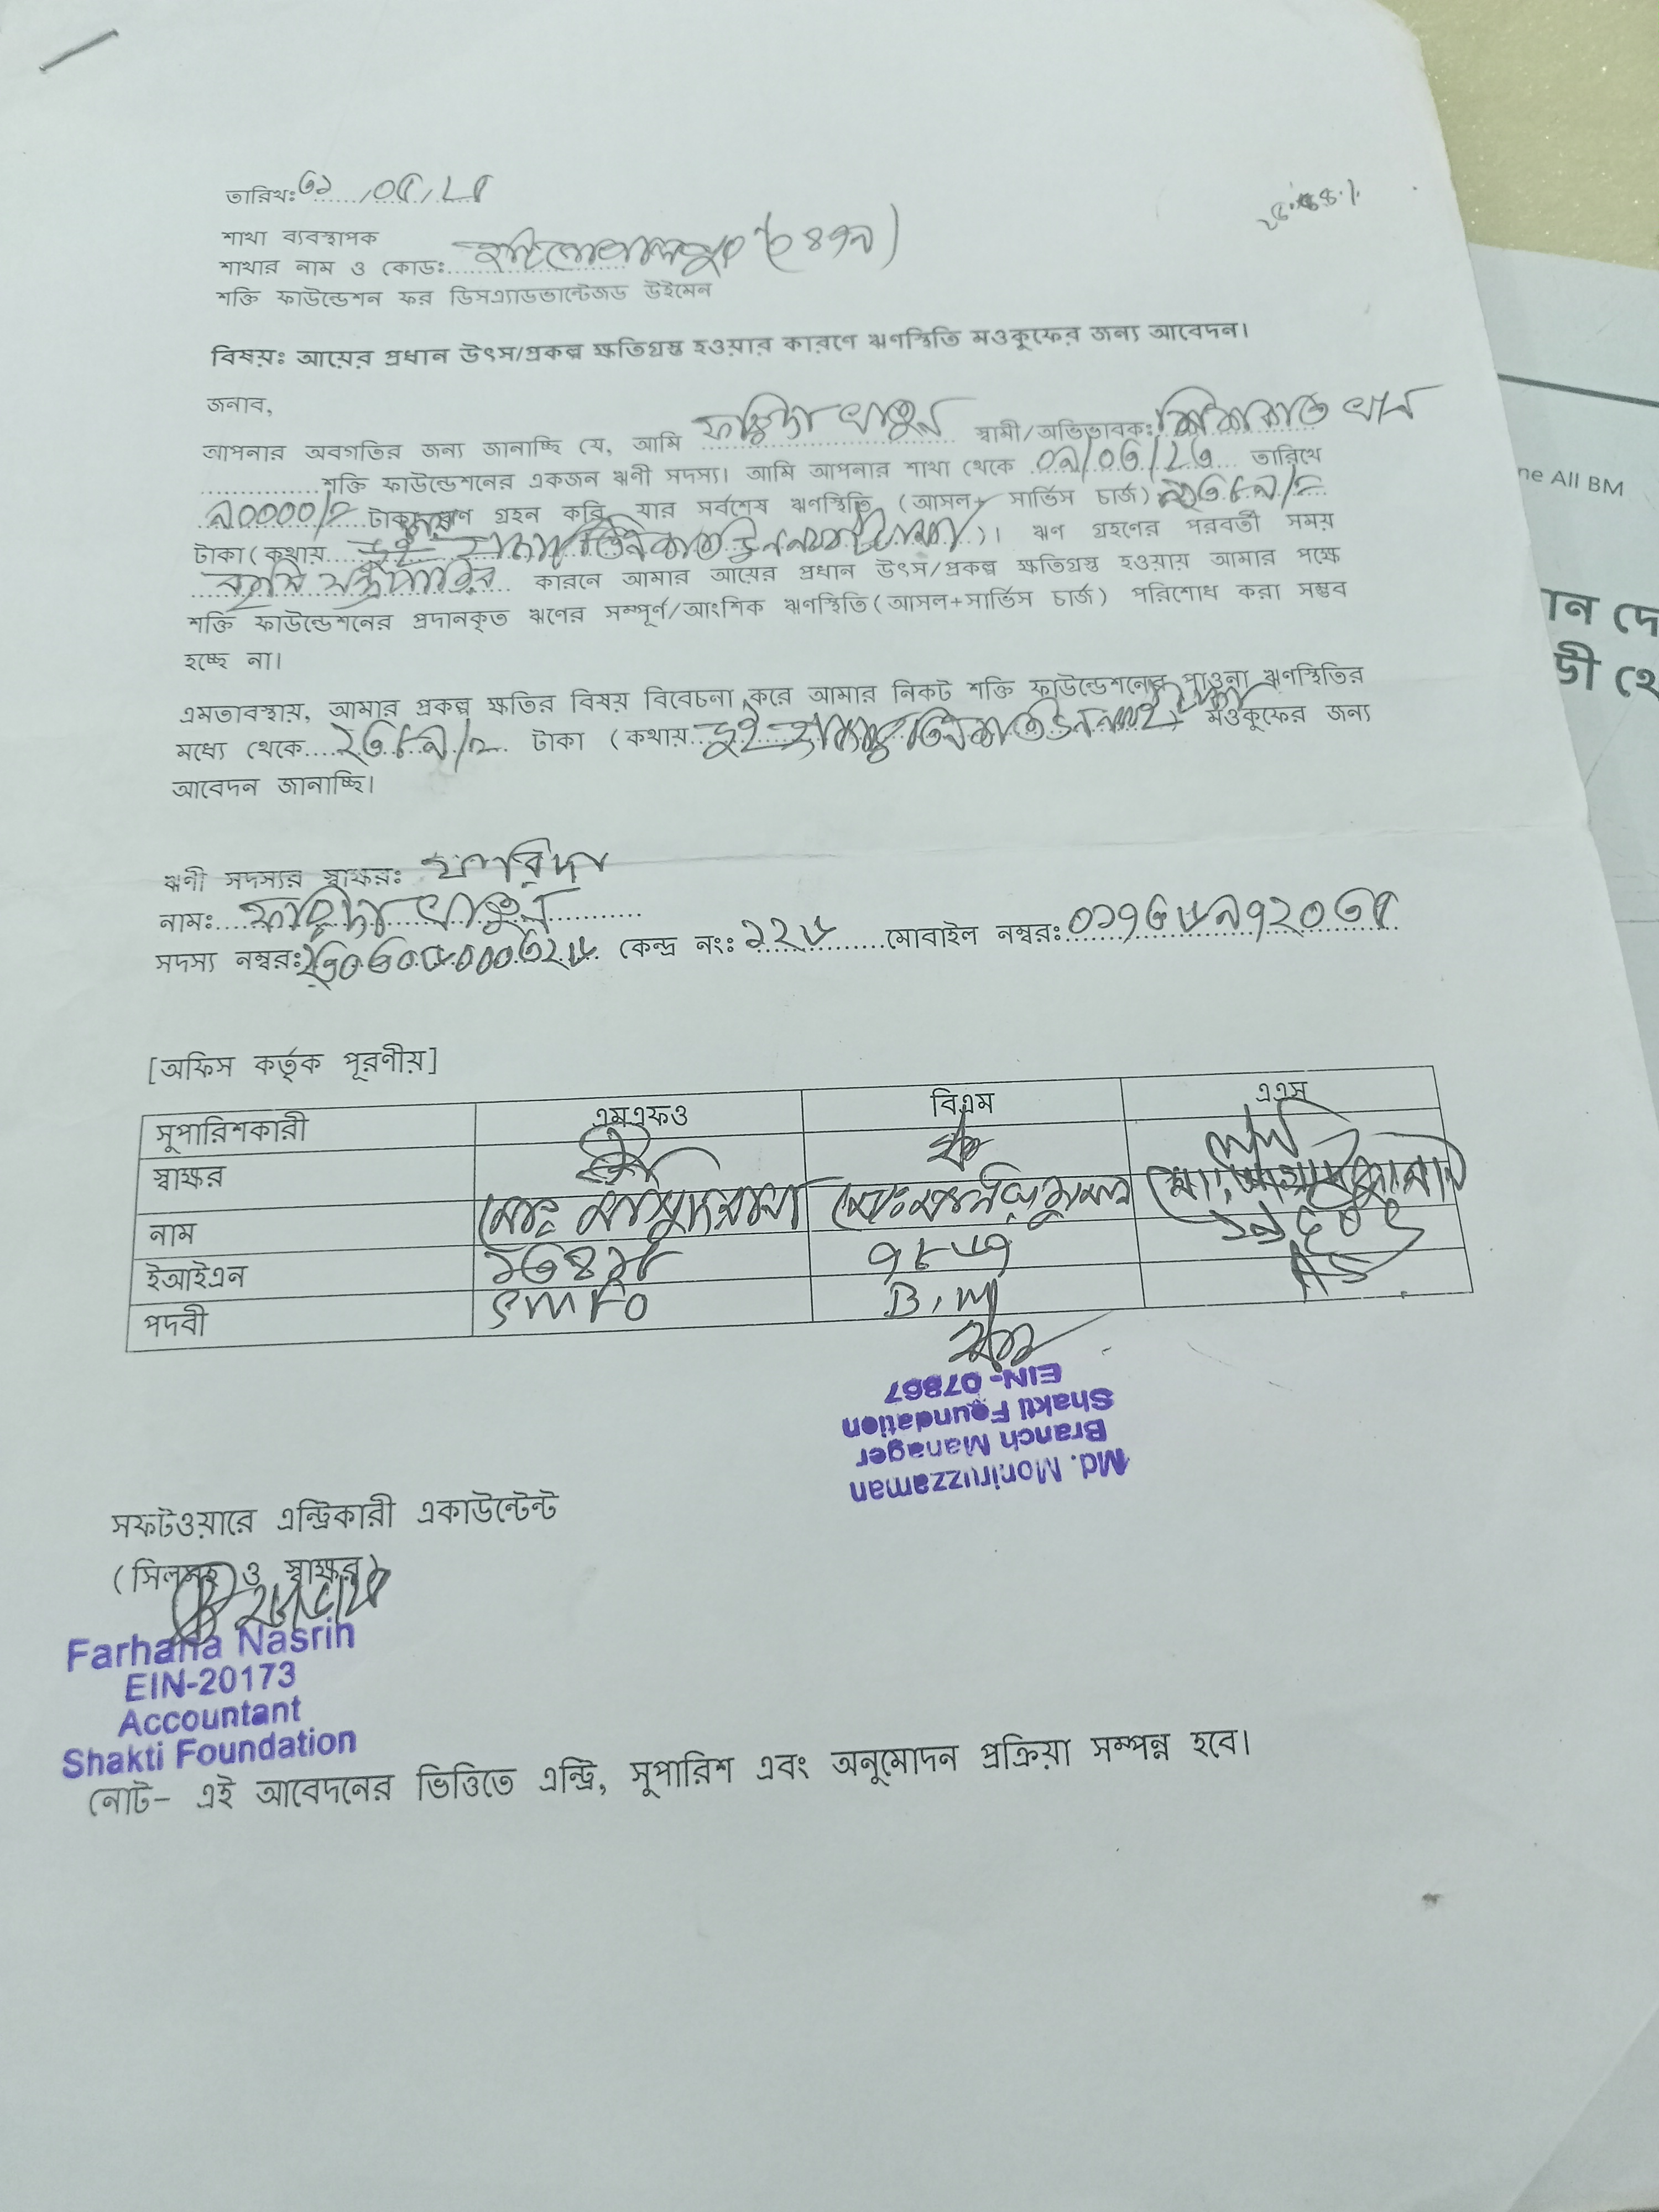 তারিখঃ ৩১/০৫/২৫
শাখা ব্যবস্থাপক
শাখার নাম ও কোডঃ
শক্তি ফাউন্ডেশন ফর ডিসএ্যাডভান্টেজড উইমেন
বিষয়ঃ আয়ের প্রধান উৎস/প্রকল্প ক্ষতিগ্রস্ত হওয়ার কারণে ঋণস্থিতি মওকুফের জন্য আবেদন।
জনাব,
আপনার অবগতির জন্য জানাচ্ছি যে, আমি ফরিদা খাতুন স্বামী/অভিভাবক:
শক্তি ফাউন্ডেশনের একজন ঋণী সদস্য। আমি আপনার শাখা থেকে ০৯/০৩/২৩ তারিখে
৯০০০০/= টাকা ঋণ গ্রহন করি যার সর্বশেষ ঋণস্থিতি (আসল+ সার্ভিস চার্জ) ২৩৮৯/=
টাকা (কথায় দুই হাজার তিনশত উননব্বই টাকা)। ঋণ গ্রহণের পরবর্তী সময়
কারনে আমার আয়ের প্রধান উৎস/প্রকল্প ক্ষতিগ্রস্ত হওয়ায় আমার পক্ষে
শক্তি ফাউন্ডেশনের প্রদানকৃত ঋণের সম্পূর্ণ/আংশিক ঋণস্থিতি (আসল+সার্ভিস চার্জ) পরিশোধ করা সম্ভব
হচ্ছে না।
এমতাবস্থায়, আমার প্রকল্প ক্ষতির বিষয় বিবেচনা করে আমার নিকট শক্তি ফাউন্ডেশনের পাওনা ঋণস্থিতির
মধ্যে থেকে ২৩৮৯/= টাকা (কথায় দুই হাজার তিনশত উননব্বই) মওকুফের জন্য
আবেদন জানাচ্ছি।
ঋণী সদস্যর স্বাক্ষরঃ ফরিদা
নামঃ ফরিদা খাতুন
সদস্য নম্বরঃ কেন্দ্র নংঃ ১২৬ মোবাইল নম্বরঃ ০১৭৩৬৯৭২০৩৫
[অফিস কর্তৃক পূরণীয়]
সুপারিশকারী এমএফও বিএম এএস
স্বাক্ষর
নাম
ইআইএন ১৩৪১৮ ৭৮৬৭
পদবী SMFO B.M AS
EIN- 07867
Shakti Foundation
Branch Manager
Md. Moniruzzaman
সফটওয়ারে এন্ট্রিকারী একাউন্টেন্ট
(সিলসহ ও স্বাক্ষর)
Farhana Nasrin
EIN-20173
Accountant
Shakti Foundation
নোট- এই আবেদনের ভিত্তিতে এন্ট্রি, সুপারিশ এবং অনুমোদন প্রক্রিয়া সম্পন্ন হবে।
ne All BM